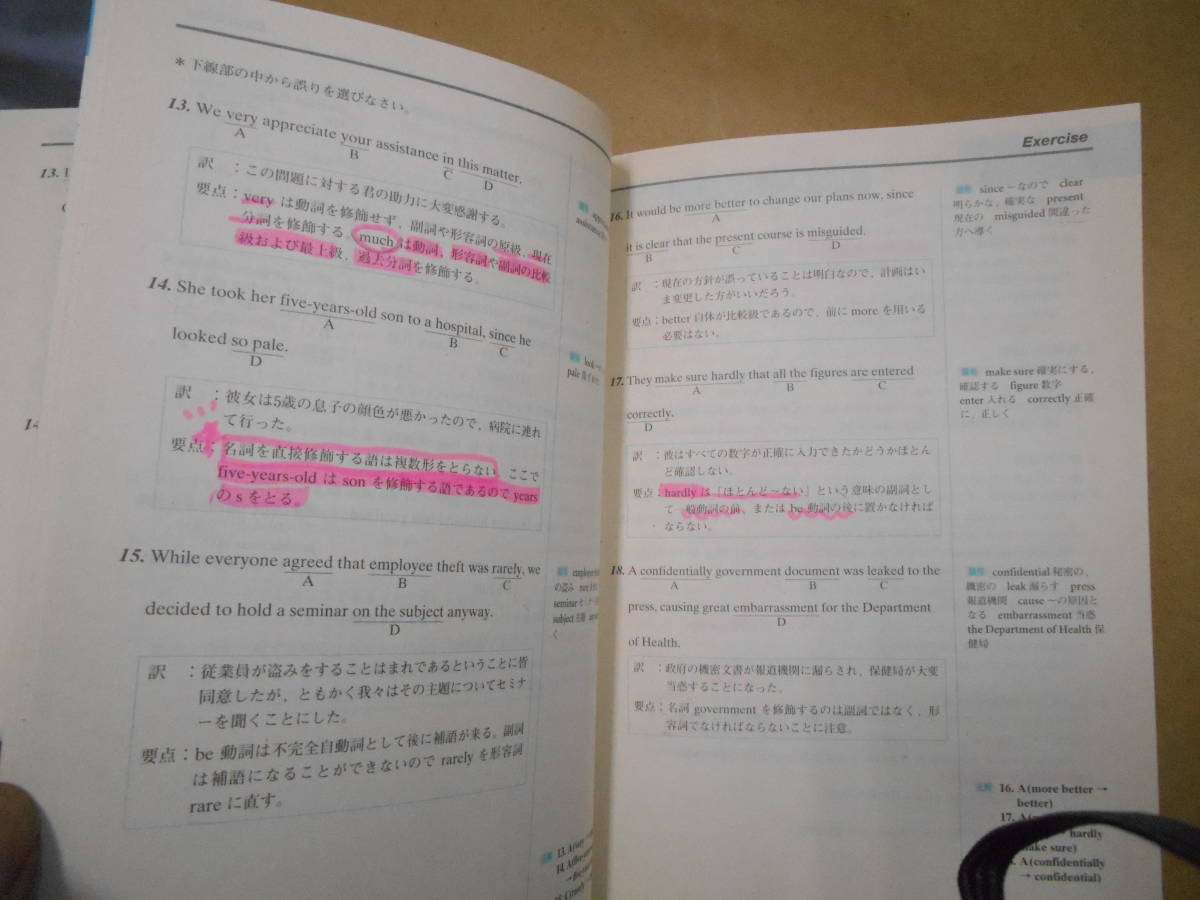 ＊下線部の中から誤りを選びなさい。
13. We very appreciate your assistance in this matter.
A B C D
訳 ：この問題に対する君の助力に大変感謝する。
要点：veryは動詞を修飾せず，副詞や形容詞の原級，現在
分詞を修飾する。muchは動詞，形容詞や副詞の比較
級および最上級，過去分詞を修飾する。
14. She took her five-years-old son to a hospital, since he
A B C
looked so pale.
D
訳 ：彼女は5歳の息子の顔色が悪かったので，病院に連れ
て行った。
要点：名詞を直接修飾する語は複数形をとらない。ここで
five-years-old は son を修飾する語であるので years
の s をとる。
15. While everyone agreed that employee theft was rarely, we
A B C
decided to hold a seminar on the subject anyway.
D
訳 ：従業員が盗みをすることはまれであるということに皆
同意したが，ともかく我々はその主題についてセミナ
ーを聞くことにした。
要点：be 動詞は不完全自動詞として後に補語が来る。副詞
は補語になることができないので rarely を形容詞
rare に直す。
13.
14
Exercise
16. It would be more better to change our plans now, since
A
it is clear that the present course is misguided.
B C D
訳 ：現在の方針が誤っていることは明白なので，計画はい
ま変更した方がいいだろう。
要点：better 自体が比較級であるので，前に more を用いる
必要はない。
17. They make sure hardly that all the figures are entered
A B C
correctly.
D
訳 ：彼はすべての数字が正確に入力できたかどうかほとん
ど確認しない。
要点：hardly は「ほとんど～ない」という意味の副詞とし
て一般動詞の前，または be 動詞の後に置かなければ
ならない。
18. A confidentially government document was leaked to the
A B C
press, causing great embarrassment for the Department
D
of Health.
訳 ：政府の機密文書が報道機関に漏らされ，保健局が大変
当惑することになった。
要点：名詞 government を修飾するのは副詞ではなく，形
容詞でなければならないことに注意。
since ～なので clear
明らかな，確実な present
現在の misguided 間違った
方へ導く
make sure 確実にする，
確認する figure 数字
enter 入れる correctly 正確
に，正しく
confidential 秘密の，
機密の leak 漏らす press
報道機関 cause ～の原因と
なる embarrassment 当惑
the Department of Health 保
健局
16. A (more better →
better)
17. A
hardly
make sure)
A (confidentially
→ confidential)